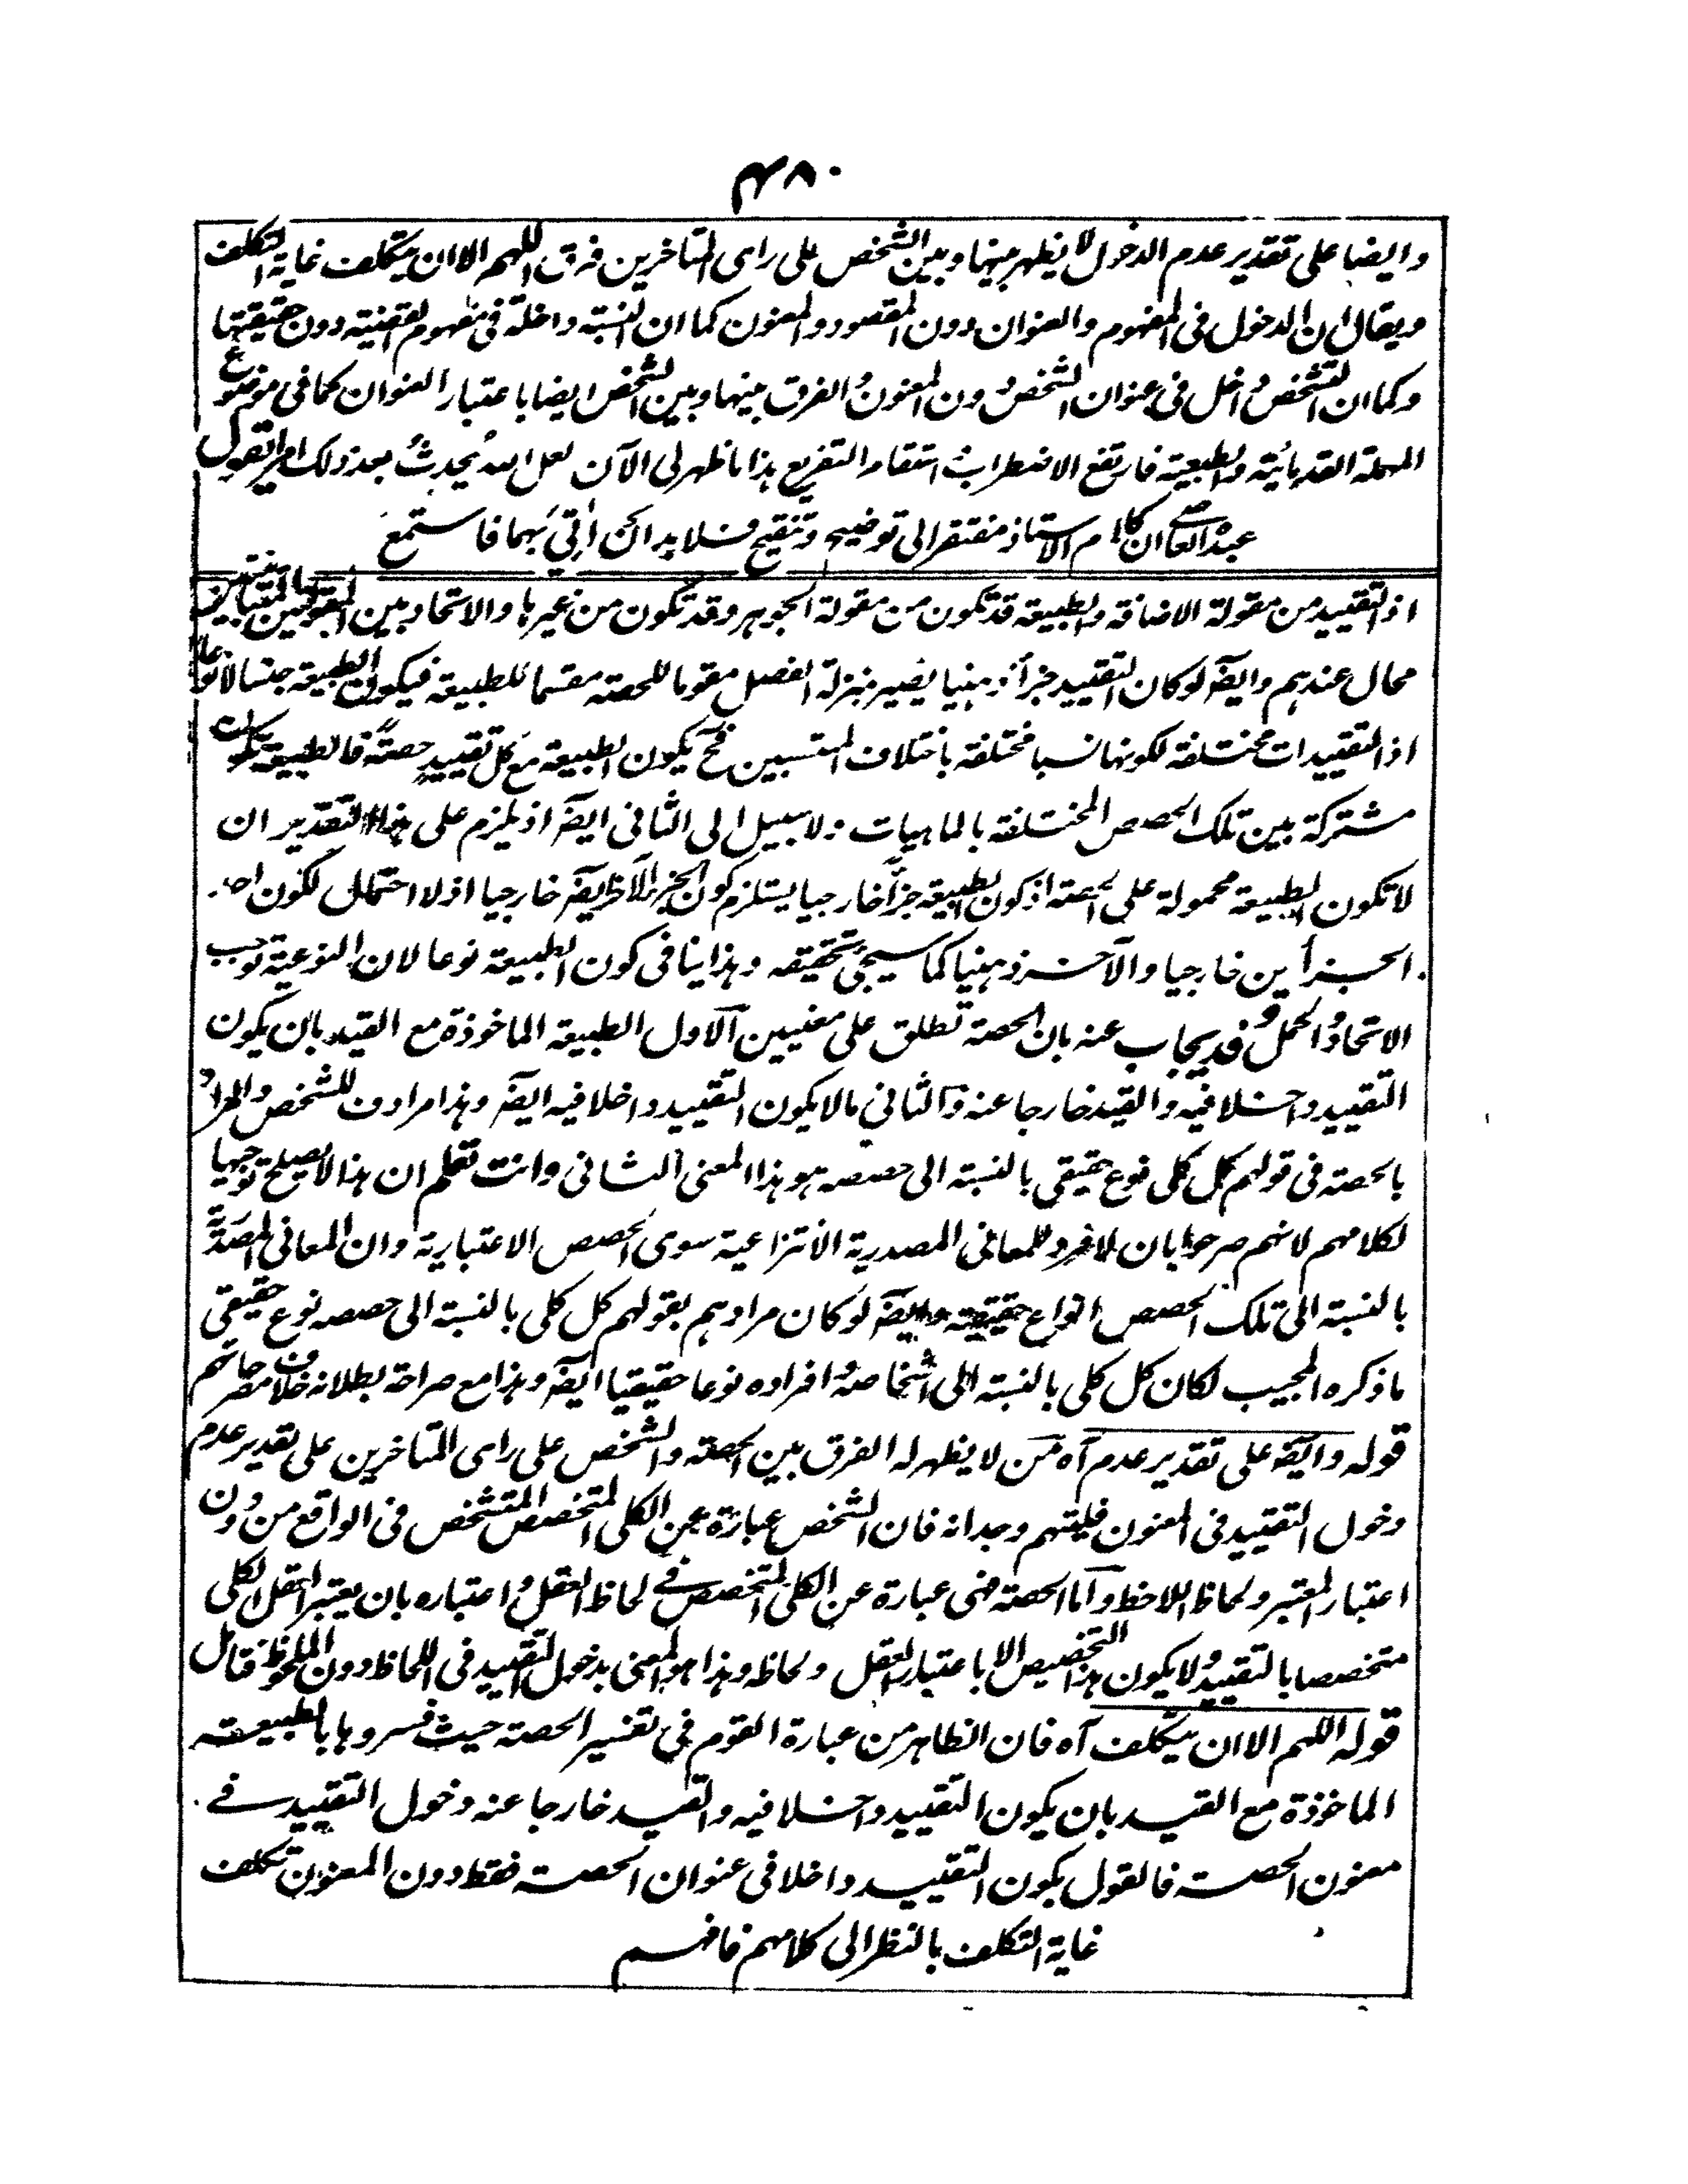 ۴۸۰
وايضا على تقدير عدم الدخول لا يظهر بينها وبين الشخص على راى المتاخرين فرق اللهم الا ان يتكلف غاية التكلف
ويقال ان الدخول فى المفهوم والعنوان دون المقصود والمعنون كما ان النسبة داخلة فى مفهوم القضية دون حقيقتها
وكما ان التشخص داخل فى عنوان الشخص دون المعنون والفرق بينها وبين الشخص ايضا باعتبار العنوان كما فى موضوع
المهملة القدمائية والطبعية فارتفع الاضطراب واستقام التفريع هذا ما ظهر لى الآن لعل الله يحدث بعد ذلك امرا تقول
عبده العاصى ان كلام الاستاذ مفتقر الى توضيح وتنقيح فلا بد لى ان اٰتى بهما فاستمع
اذ التقييد من مقولة الاضافة والطبيعة قد تكون من مقولة الجوهر وقد تكون من غيرها والاتحاد بين المقولتين المتباينتين
محال عندهم وايضؔ لو كان التقييد جزأ ذهنيا يصير بمنزلة الفصل مقوما للحصة مقسما للطبيعة فيكون الطبيعة جنسا لا نوعا
اذ التقييدات مختلفة لكونها نسبا مختلفة باختلاف المنتسبين فحؔ يكون الطبيعة مع كل تقييدٍ حصةً فالطبيعة تكون
مشتركة بين تلك الحصص المختلفة بالماهيات ولا سبيل الى الثانى ايضؔ اذ يلزم على هذا التقدير ان
لا تكون الطبيعة محمولة على الحصة اذ كون الطبيعة جزأً خارجيا يستلزم كون الجزء الآخر ايضؔ خارجيا اذ لا احتمال لكون احد
الجزأين خارجيا والآخر ذهنيا كما سيجئ تحقيقه وهذا ينافى كون الطبيعة نوعا لان النوعية توجب
الاتحاد والحمل وقد يجاب عنه بان الحصة تطلق على معنيين الاول الطبيعة الماخوذة مع القيد بان يكون
التقييد داخلا فيه والقيد خارجا عنه والثانى مالا يكون التقييد داخلا فيه ايضؔ وهذا مرادف للشخص والمراد
بالحصة فى قولهم كل كلى نوع حقيقى بالنسبة الى حصصه هو هذا المعنى الثانى وانت تعلم ان هذا لا يصلح توجيها
لكلامهم لانهم صرحوا بان لا فرد للمعانى المصدرية الانتزاعية سوى الحصص الاعتبارية وان المعانى المصدرية
بالنسبة الى تلك الحصص انواع حقيقية وايضؔ لو كان مرادهم بقولهم كل كلى بالنسبة الى حصصه نوع حقيقى
ما ذكره المجيب لكان كل كلى بالنسبة الى اشخاصه وافراده نوعا حقيقيا ايضؔ وهذا مع صراحة بطلانه خلاف مصرحاتهم
قوله وايضؔ على تقدير عدم آه من لا يظهر له الفرق بين الحصة والشخص على راى المتاخرين على تقدير عدم
دخول التقييد فى المعنون فليتهم وجدانه فان الشخص عبارة عن الكلى المتخصص المتشخص فى الواقع من دون
اعتبار المعتبر ولحاظ اللاحظ واما الحصة فهى عبارة عن الكلى المتخصص فى لحاظ العقل واعتباره بان يعتبر العقل الكلى
متخصصا بالتقييد ولا يكون هذا التخصيص الا باعتبار العقل ولحاظه وهذا هو المعنى بدخول التقييد فى اللحاظ دون الملحوظ فتامل
قوله اللهم الا ان يتكلف آه فان الظاهر من عبارة القوم فى تفسير الحصة حيث فسروها بالطبيعة
الماخوذة مع القيد بان يكون التقييد داخلا فيه والقيد خارجا عنه دخول التقييد فى
معنون الحصة فالقول بكون التقييد داخلا فى عنوان الحصة فقط دون المعنون تكلف
غاية التكلف بالنظر الى كلامهم فافهم